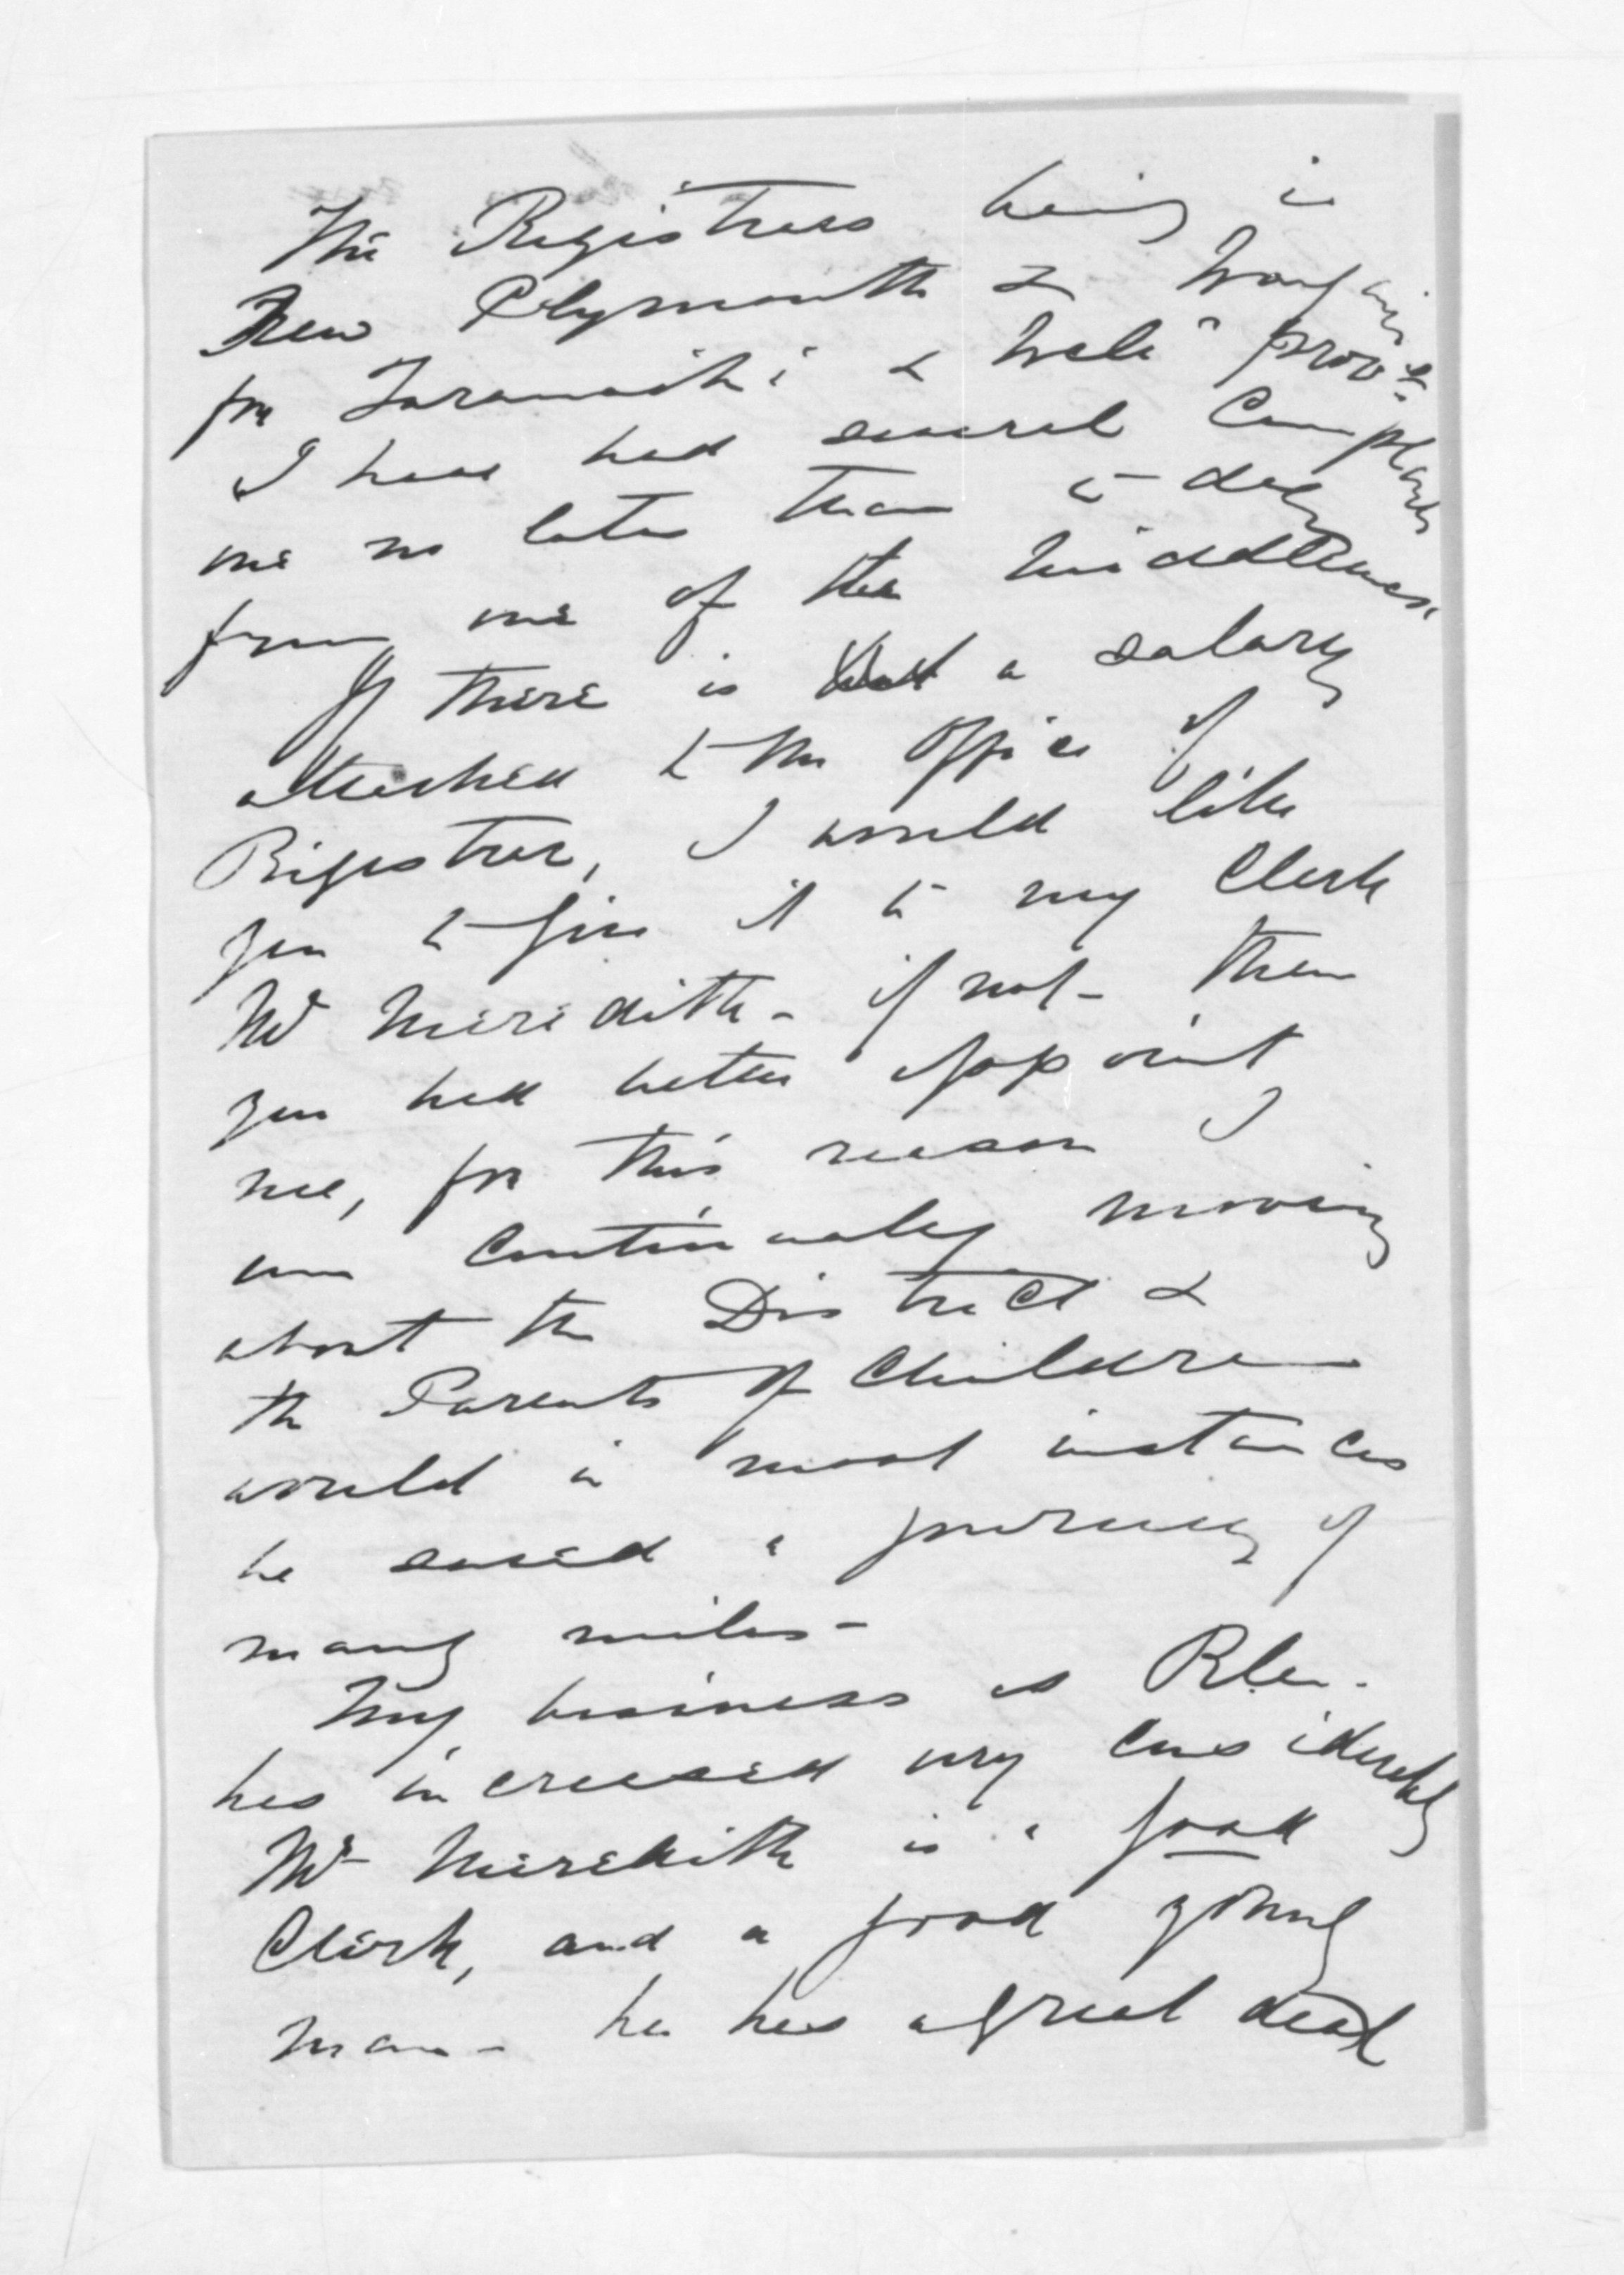 The Registrars being in
New Plymouth & Wanganui
for Taranaki & Well" Prov es.
I have had several Complaints
one no later than to-day
from one of the
If there is a salary
attached to the office of
Registrar, I would like
you to give it to my Clerk
Mr Meredith - if not - then
you had better appoint
me, for this reason I
am continually moving
about the District &
the Parents of Children
would in most instances
be saved a journey of
many miles -
My business as
has increased very considerably
Mr Meredith is a good
Clerk, and a good young
man - he has a great deal